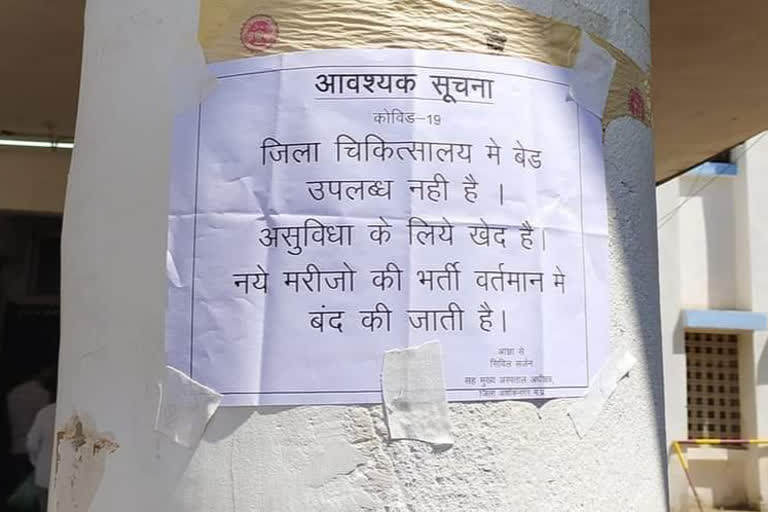 आवश्यक सूचना
कोविड-19
जिला चिकित्सालय मे बेड
उपलब्ध नही है ।
असुविधा के लिये खेद है।
नये मरीजो की भर्ती वर्तमान मे
बंद की जाती है।
आज्ञा से
सिविल सर्जन
सह मुख्य अस्पताल अधीक्षक,
जिला अशोकनगर म.प्र